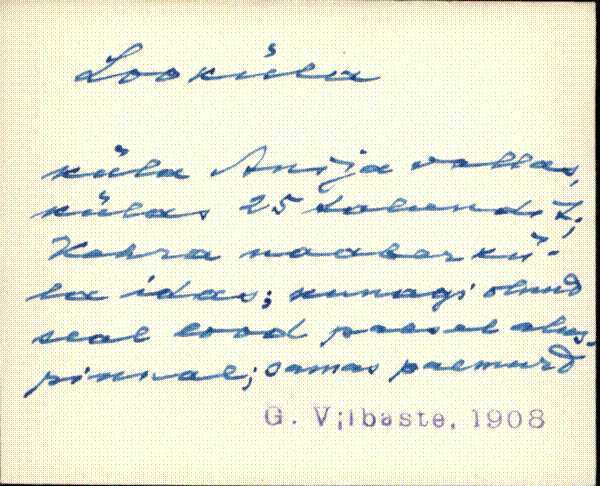 Looküla
küla Anija vallas,
külas 25 talundit;
Kehra naaberkü-
la idas; kunagi olnud
seal lood paesel alus-
pinnal; samas paemurd
G. Vilbaste, 1908